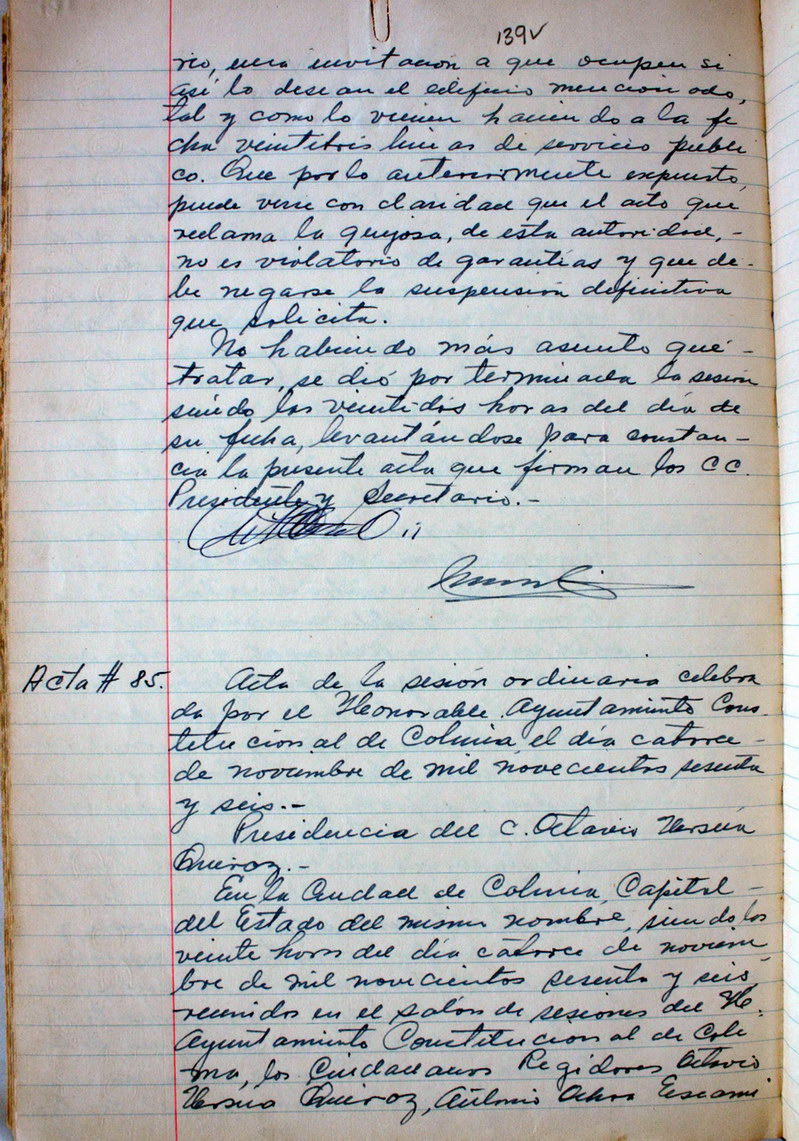 139v
rio, una invitación a que ocupen si
así lo desean el edificio mencionado,
tal y como lo vienen haciendo a la fe
cha veintitrés líneas de servicio públi
co. Que por lo anteriormente expuesto,
puede verse con claridad que el acto que
reclama la quejosa, de esta autoridad, -
no es violatorio de garantías y que de-
be negarse la suspensión definitiva
que solicita.
No habiendo más asunto que -
tratar, se dió por terminada la sesión
siendo las veintidós horas del día de
su fecha, levantándose para constan-
cia la presente acta que firman los CC.
Presidente y Secretario.-
Acta # 85.
Acta de la sesión ordinaria celebra
da por el Honorable Ayuntamiento Cons-
titucional de Colima, el día catorce -
de noviembre de mil novecientos sesenta
y seis.-
Presidencia del C. Octavio Ursúa
Quiroz.-
En la Ciudad de Colima, Capital -
del Estado del mismo nombre, siendo las
veinte horas del día catorce de noviem
bre de mil novecientos sesenta y seis,
reunidos en el salón de sesiones del H.
Ayuntamiento Constitucional de Coli-
ma, los Ciudadanos Regidores Octavio
Ursúa Quiroz, Antonio Ochoa Escami